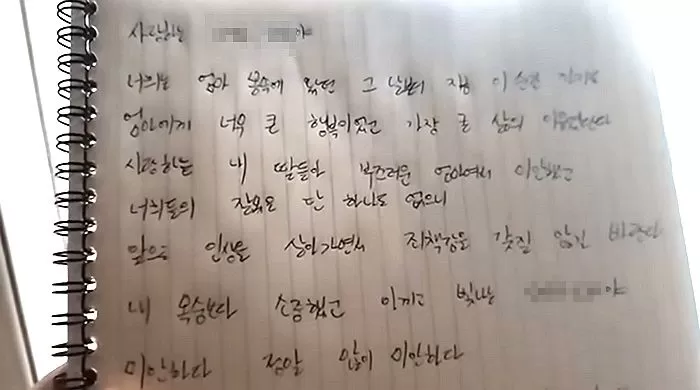 사랑하는 야
너희는 엄마 뱃속에 왔던 그 날부터 지금 이 순간 까지도
엄마에게 너무 큰 행복이었고 가장 큰 삶의 이유였단다
사랑하는 내 딸들아 부끄러운 엄마여서 미안했고
너희들의 잘못은 단 하나도 없으니
앞으로 인생을 살아가면서 죄책감을 갖질 않길 바란다
내 목숨보다 소중했고 아끼고 빛나는 야
미안하다 정말 많이 미안하다